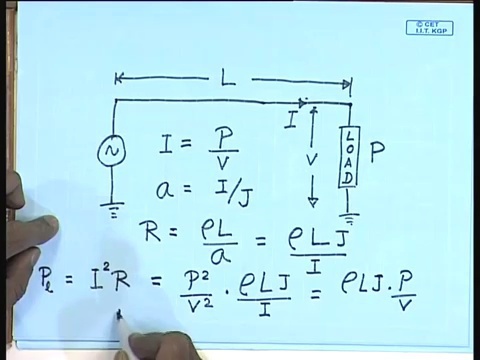 © CET
I.I.T. KGP
L
I
I = P/V
V
LOAD
P
a = I/J
R = ρL/a = ρLJ/I
Pℓ = I²R = P²/V² · ρLJ/I = ρLJ · P/V